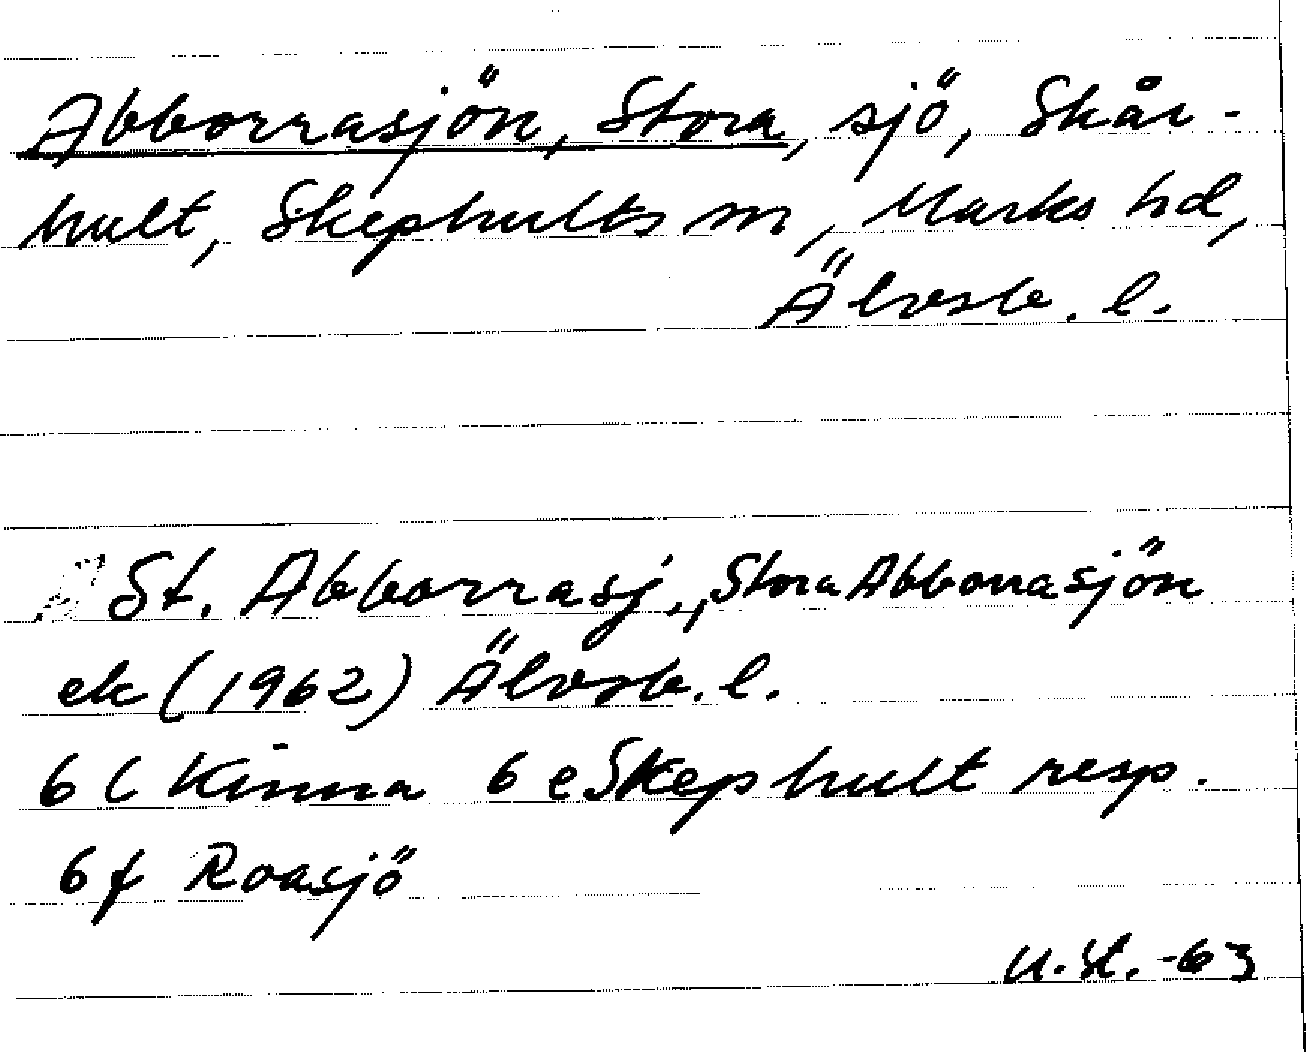 Abborrasjön, Stora, sjö, Skår-
hult, Skephults sn, Marks hd,
Älvsb. l.
St. Abborrasj., Stora Abborrasjön
ek (1962) Älvsb. l.
6 C Kinna 6 e Skephult resp.
6 f Roasjö
-63